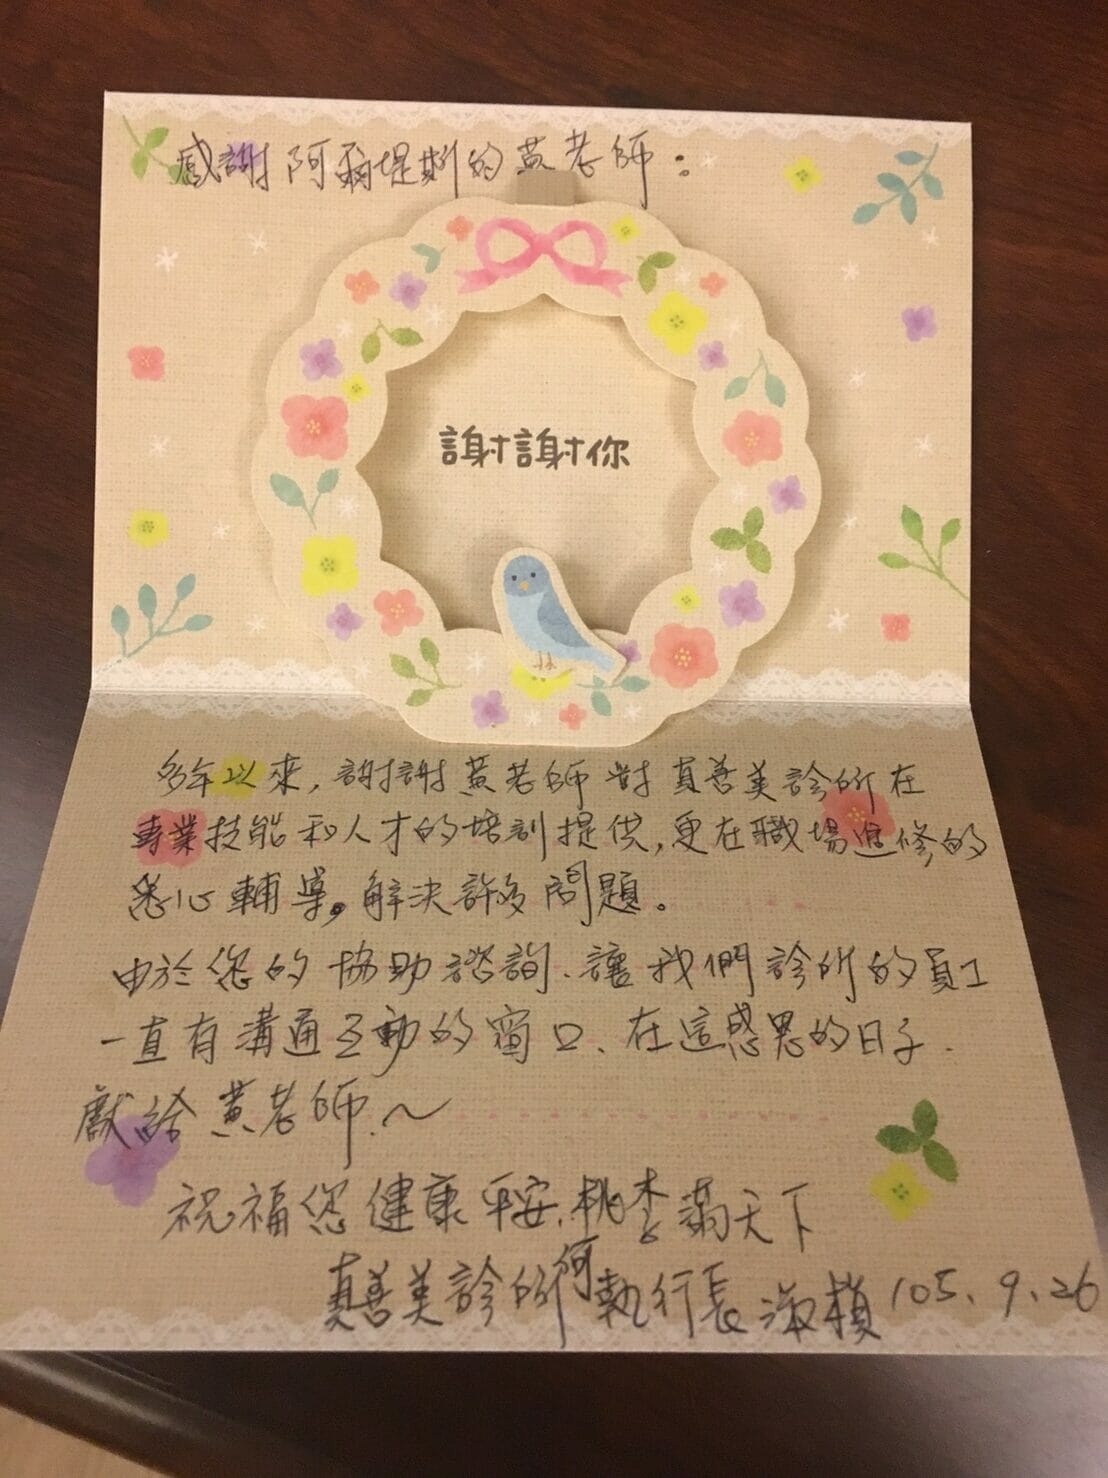 感謝阿爾堤斯的黃老師：
謝謝你
多年以來，謝謝黃老師對真善美診所在
專業技能和人才的培訓提供，更在職場進修的
悉心輔導，解決許多問題。
由於您的協助諮詢、讓我們診所的員工
一直有溝通互動的窗口、在這感恩的日子．
獻給黃老師．～
祝福您健康平安．桃李滿天下
真善美診所何執行長淑楨 105、9、26